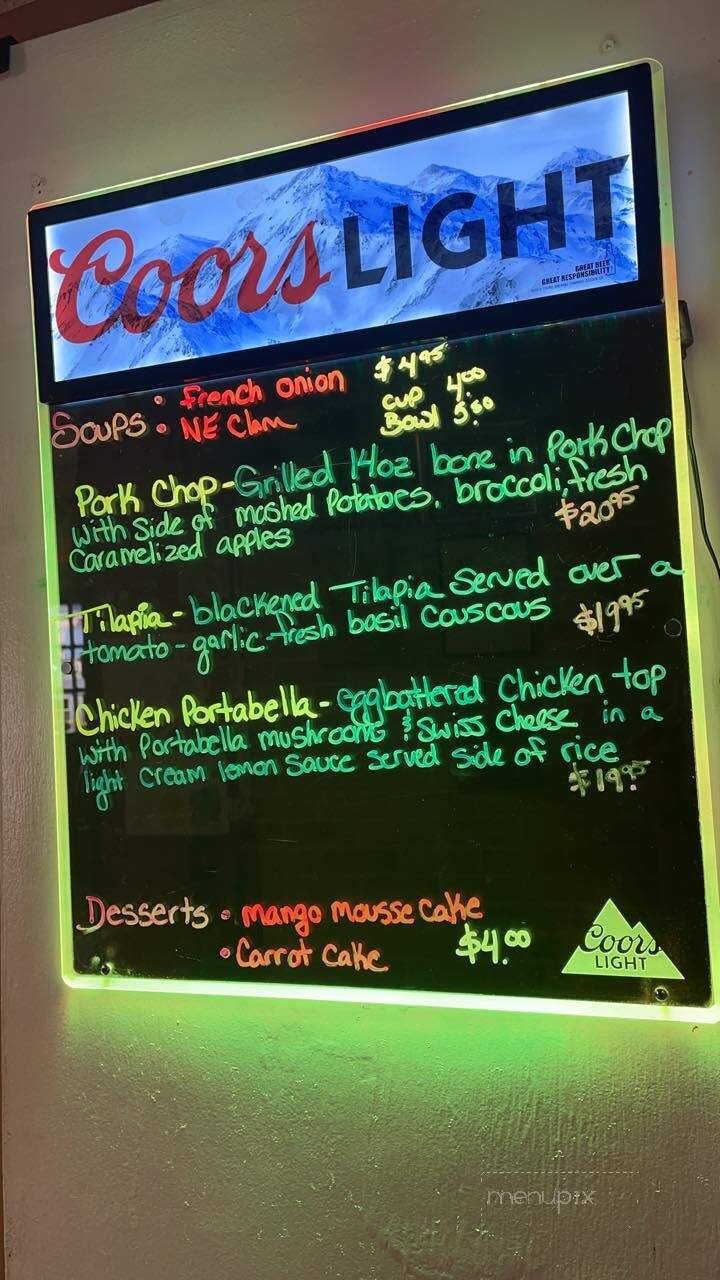 Coors LIGHT
GREAT BEER
GREAT RESPONSIBILITY
Soups: • French Onion $4.95
• NE Clam cup 4.00
Bowl 5.
Pork Chop - Grilled 14oz bone in Pork Chop
with side of mashed Potatoes, broccoli, fresh
Caramelized apples $20.95
Tilapia - blackened Tilapia served over a
tomato - garlic - fresh basil couscous $19.95
Chicken Portabella - eggbattered Chicken top
with Portabella mushrooms & Swiss Cheese in a
light cream lemon sauce served side of rice
$19.95
Desserts • Mango Mousse Cake
• Carrot Cake $4.00
Coors
LIGHT
menupix